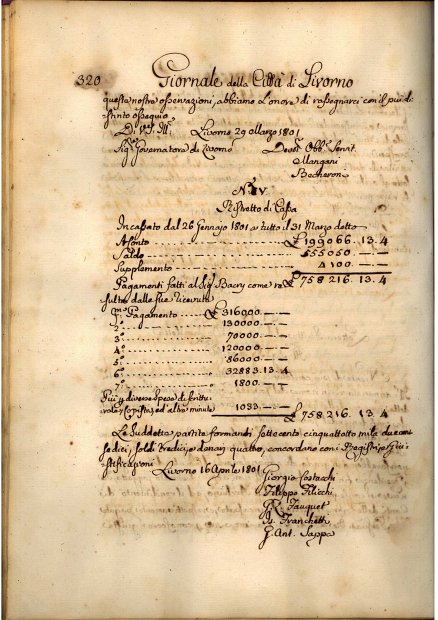 320 Giornale della Città di Livorno
queste nostre osservazioni, abbiamo l'onore di rassegnarci con il più di-
stinto ossequio
Di V.S. Ill.
Livorno 29 Marzo 1801
Sig.r Governatore di Livorno Dev.mi Obb.mi Servit.
Mangani
Becheroni
N.° IV.
Ristretto di Cassa
Incassato dal 26 Gennajo 1801 a tutto il 31 Marzo detto
Assonto £ 199066. 13. 4
Saldo 555050. — . —
Supplemento 4100. — . —
Pagamenti fatti al Sig. Bacry come re £ 758216. 13. 4
sulta dalle sue Ricevute
P.mo Pagamento £ 316000. — . —
2.° 130000. — . —
3.° 70000. — . —
4.° 120000. — . —
5.° 86000. — . —
6.° 32883. 13. 4
7.° 1800. — . —
Più diverse spese di scrittu
copisti, ed altre minute 1033. — . — £ 758216. 13. 4
Le suddette partite formanti settecento cinquattotto mila duecen
sedici, soldi tredici, e denari quattro, concordano con i Registri, e Giu-
stificazioni
Livorno 16 Aprile 1801
Giorgio Costacchi
Filippo Filicchi
G. R. Fauquet
Is. Franchetti
G. Ant. Sappa